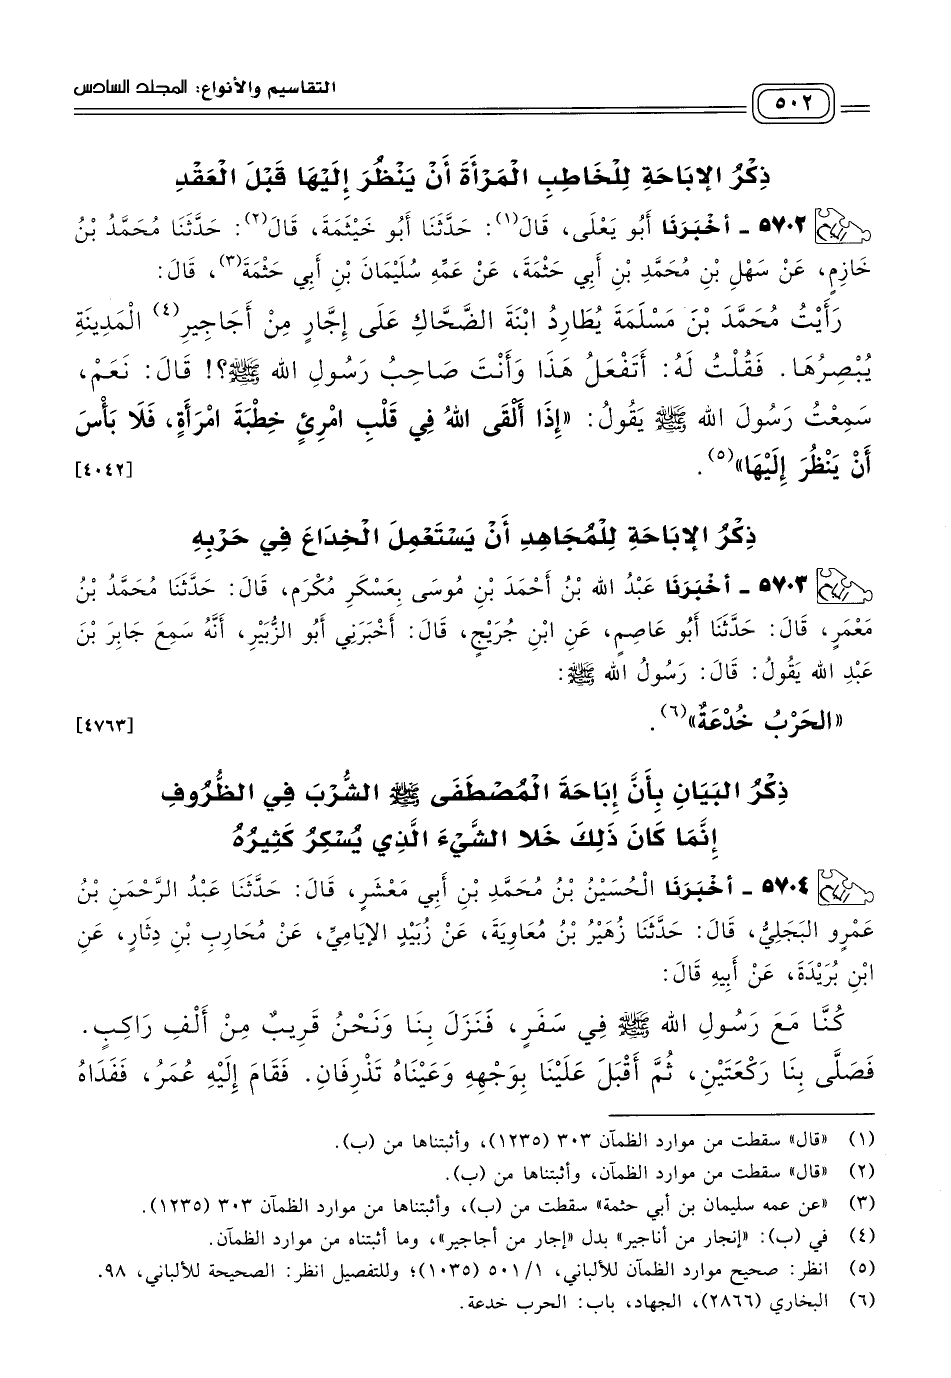 التقاسيم والأنواع: المجلد السادس
٥٠٢
ذِكْرُ الإِبَاحَةِ لِلْخَاطِبِ الْمَرْأَةَ أَنْ يَنْظُرَ إِلَيْهَا قَبْلَ الْعَقْدِ
٥٧٠٢ - أَخْبَرَنَا أَبُو يَعْلَى، قَالَ(١): حَدَّثَنَا أَبُو خَيْثَمَةَ، قَالَ(٢): حَدَّثَنَا مُحَمَّدُ بْنُ
خَازِمٍ، عَنْ سَهْلِ بْنِ مُحَمَّدِ بْنِ أَبِي حَثْمَةَ، عَنْ عَمِّهِ سُلَيْمَانَ بْنِ أَبِي حَثْمَةَ(٣)، قَالَ:
رَأَيْتُ مُحَمَّدَ بْنَ مَسْلَمَةَ يُطَارِدُ ابْنَةَ الضَّحَّاكِ عَلَى إِجَّارٍ مِنْ أَجَاجِيرِ(٤) الْمَدِينَةِ
يُبْصِرُهَا. فَقُلْتُ لَهُ: أَتَفْعَلُ هَذَا وَأَنْتَ صَاحِبُ رَسُولِ الله ﷺ؟! قَالَ: نَعَمْ،
سَمِعْتُ رَسُولَ الله ﷺ يَقُولُ: «إِذَا أَلْقَى اللهُ فِي قَلْبِ امْرِئٍ خِطْبَةَ امْرَأَةٍ، فَلَا بَأْسَ
أَنْ يَنْظُرَ إِلَيْهَا»(٥). [٤٠٤٢]
ذِكْرُ الإِبَاحَةِ لِلْمُجَاهِدِ أَنْ يَسْتَعْمِلَ الْخِدَاعَ فِي حَرْبِهِ
٥٧٠٣ - أَخْبَرَنَا عَبْدُ الله بْنُ أَحْمَدَ بْنِ مُوسَى بِعَسْكَرِ مُكْرَمٍ، قَالَ: حَدَّثَنَا مُحَمَّدُ بْنُ
مَعْمَرٍ، قَالَ: حَدَّثَنَا أَبُو عَاصِمٍ، عَنِ ابْنِ جُرَيْجٍ، قَالَ: أَخْبَرَنِي أَبُو الزُّبَيْرِ، أَنَّهُ سَمِعَ جَابِرَ بْنَ
عَبْدِ الله يَقُولُ: قَالَ: رَسُولُ الله ﷺ:
«الحَرْبُ خُدْعَةٌ»(٦). [٤٧٦٣]
ذِكْرُ البَيَانِ بِأَنَّ إِبَاحَةَ الْمُصْطَفَى ﷺ الشُّرْبَ فِي الظُّرُوفِ
إِنَّمَا كَانَ ذَلِكَ خَلا الشَّيْءَ الَّذِي يُسْكِرُ كَثِيرُهُ
٥٧٠٤ - أَخْبَرَنَا الْحُسَيْنُ بْنُ مُحَمَّدِ بْنِ أَبِي مَعْشَرٍ، قَالَ: حَدَّثَنَا عَبْدُ الرَّحْمَنِ بْنُ
عَمْرٍو البَجَلِيُّ، قَالَ: حَدَّثَنَا زُهَيْرُ بْنُ مُعَاوِيَةَ، عَنْ زُبَيْدٍ الإِيَامِيِّ، عَنْ مُحَارِبِ بْنِ دِثَارٍ، عَنِ
ابْنِ بُرَيْدَةَ، عَنْ أَبِيهِ قَالَ:
كُنَّا مَعَ رَسُولِ الله ﷺ فِي سَفَرٍ، فَنَزَلَ بِنَا وَنَحْنُ قَرِيبٌ مِنْ أَلْفِ رَاكِبٍ.
فَصَلَّى بِنَا رَكْعَتَيْنِ، ثُمَّ أَقْبَلَ عَلَيْنَا بِوَجْهِهِ وَعَيْنَاهُ تَذْرِفَانِ. فَقَامَ إِلَيْهِ عُمَرُ، فَفَدَاهُ
(١) «قال» سقطت من موارد الظمآن ٣٠٣ (١٢٣٥)، وأثبتناها من (ب).
(٢) «قال» سقطت من موارد الظمآن، وأثبتناها من (ب).
(٣) «عن عمه سليمان بن أبي حثمة» سقطت من (ب)، وأثبتناها من موارد الظمآن ٣٠٣ (١٢٣٥).
(٤) في (ب): «إنجار من أناجير» بدل «إجار من أجاجير»، وما أثبتناه من موارد الظمآن.
(٥) انظر: صحيح موارد الظمآن للألباني، ١/ ٥٠١ (١٠٣٥)؛ وللتفصيل انظر: الصحيحة للألباني، ٩٨.
(٦) البخاري (٢٨٦٦)، الجهاد، باب: الحرب خدعة.